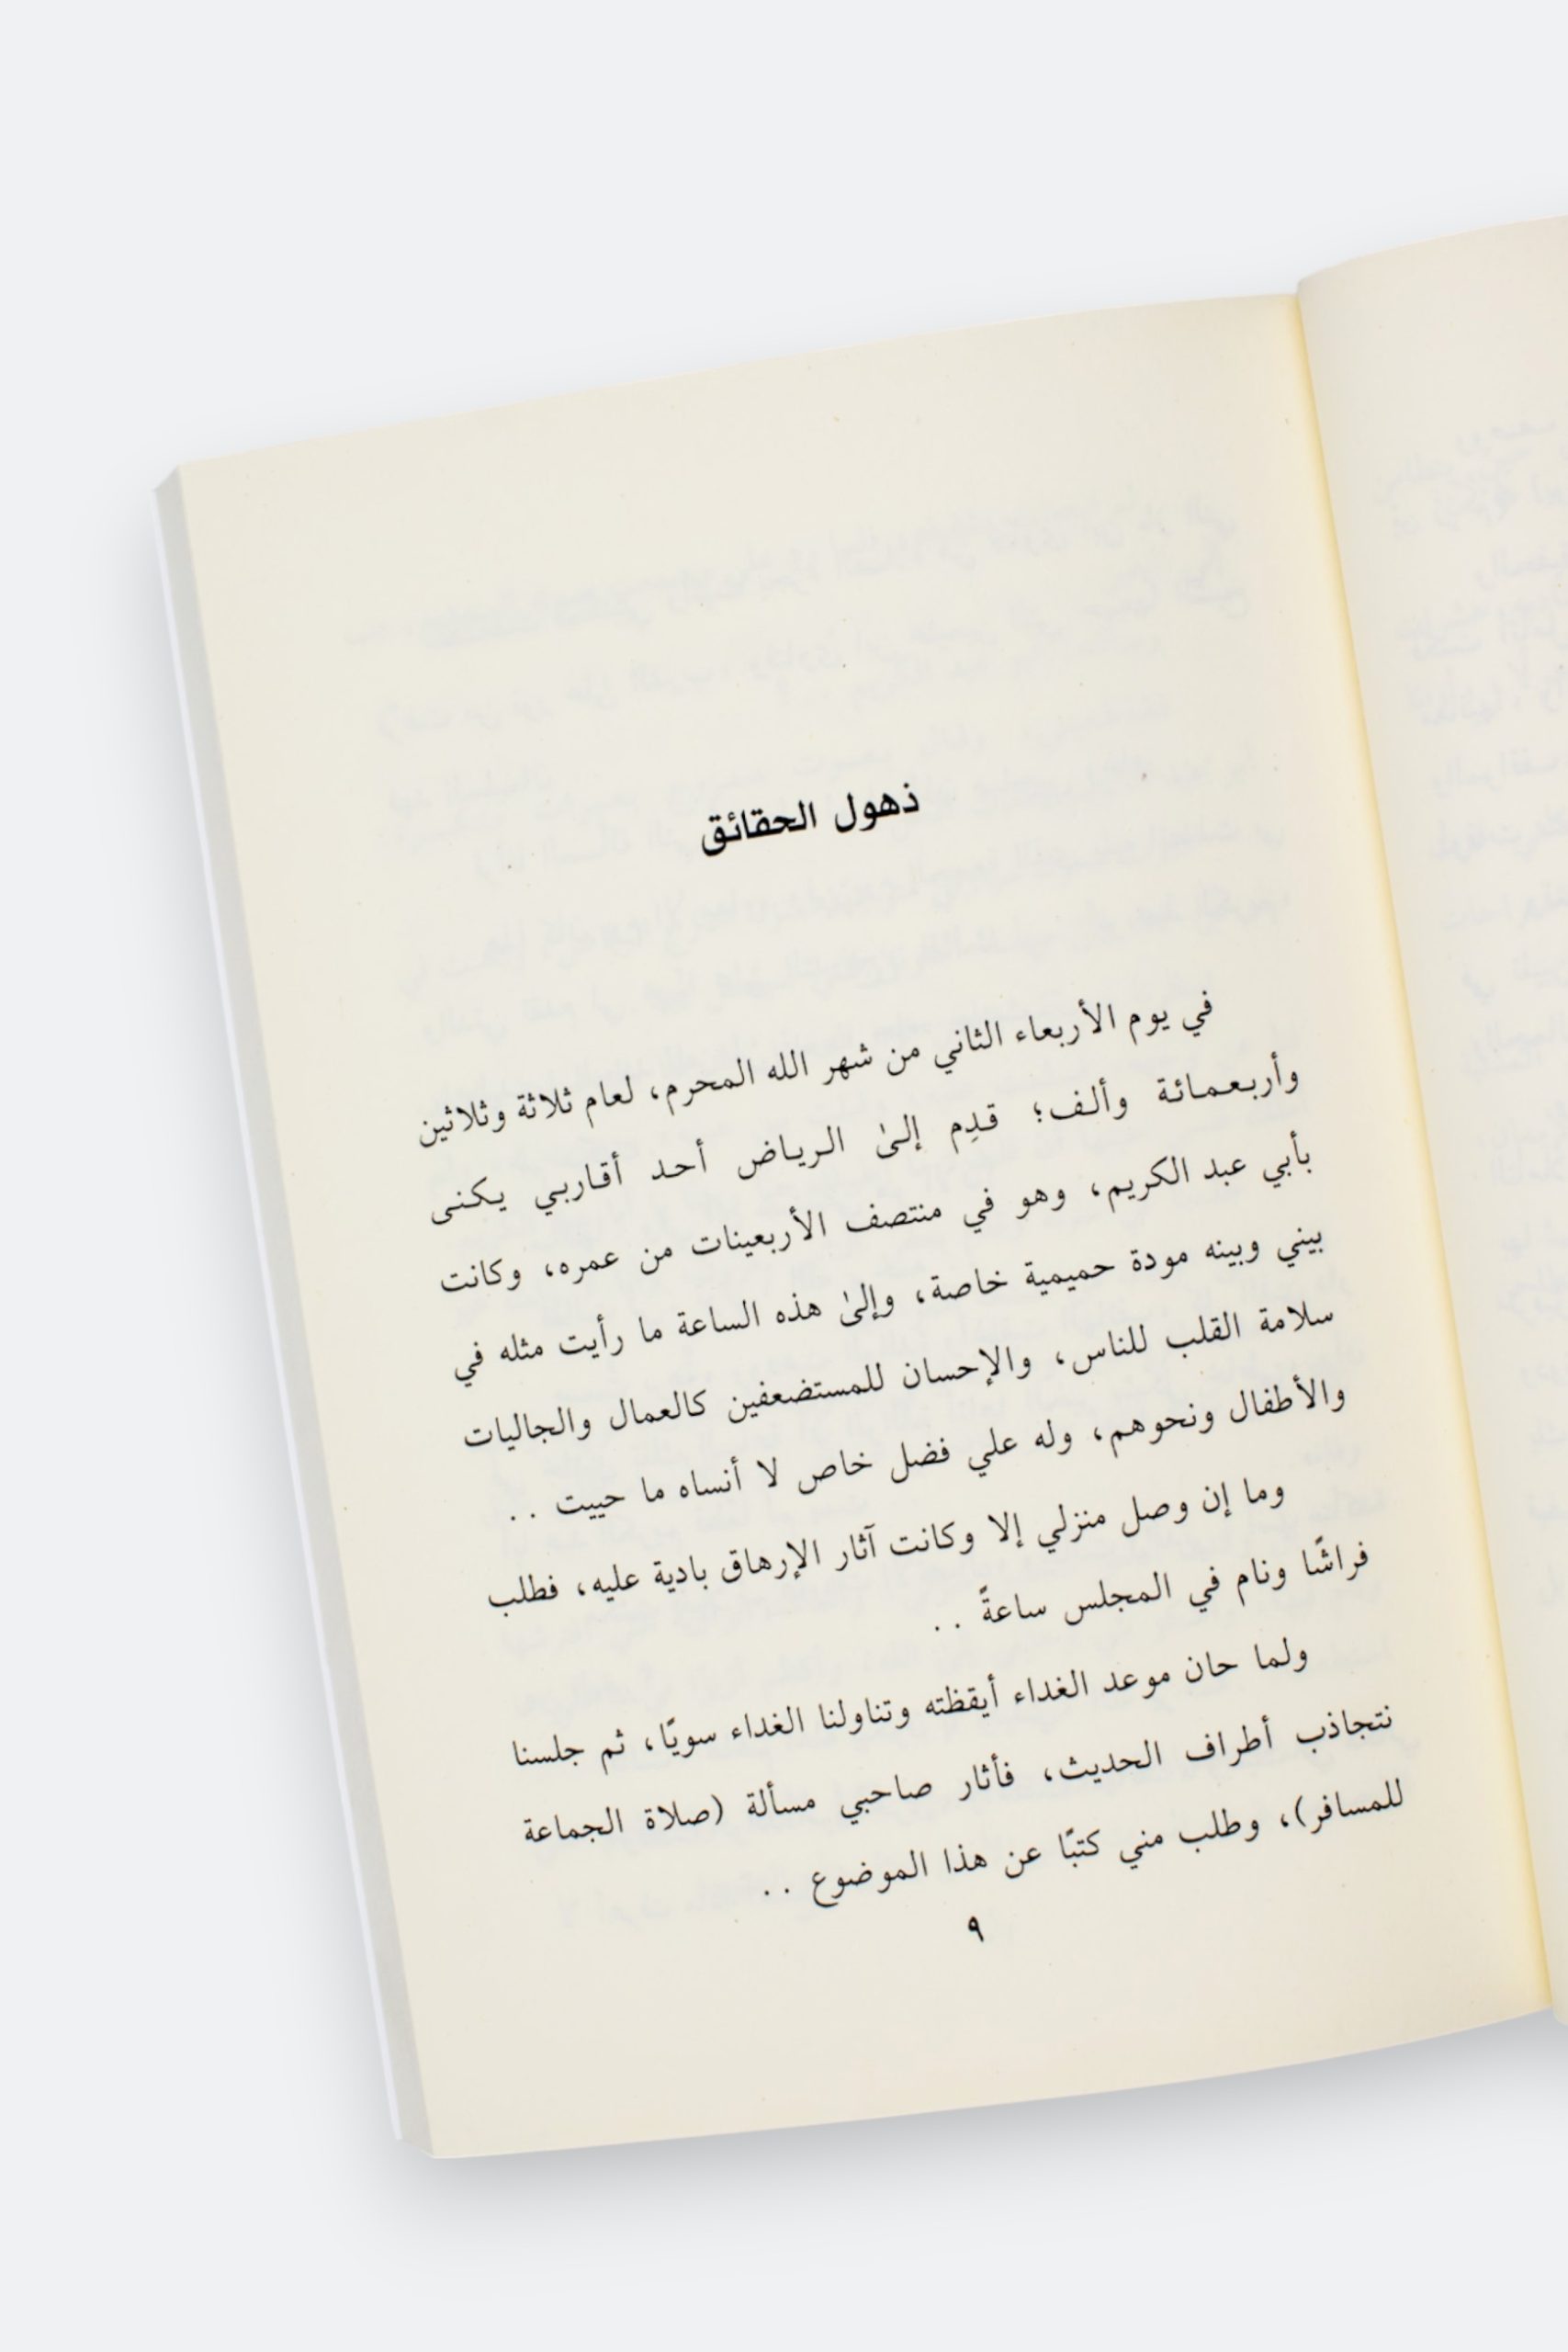 ذهول الحقائق
في يوم الأربعاء الثاني من شهر الله المحرم، لعام ثلاثة وثلاثين
وأربعمائة وألف؛ قدِم إلىٰ الرياض أحد أقاربي يكنى
بأبي عبد الكريم، وهو في منتصف الأربعينات من عمره، وكانت
بيني وبينه مودة حميمية خاصة، وإلىٰ هذه الساعة ما رأيت مثله في
سلامة القلب للناس، والإحسان للمستضعفين كالعمال والجاليات
والأطفال ونحوهم، وله علي فضل خاص لا أنساه ما حييت ..
وما إن وصل منزلي إلا وكانت آثار الإرهاق بادية عليه، فطلب
فراشًا ونام في المجلس ساعةً ..
ولما حان موعد الغداء أيقظته وتناولنا الغداء سويًا، ثم جلسنا
نتجاذب أطراف الحديث، فأثار صاحبي مسألة (صلاة الجماعة
للمسافر)، وطلب مني كتبًا عن هذا الموضوع ..
٩